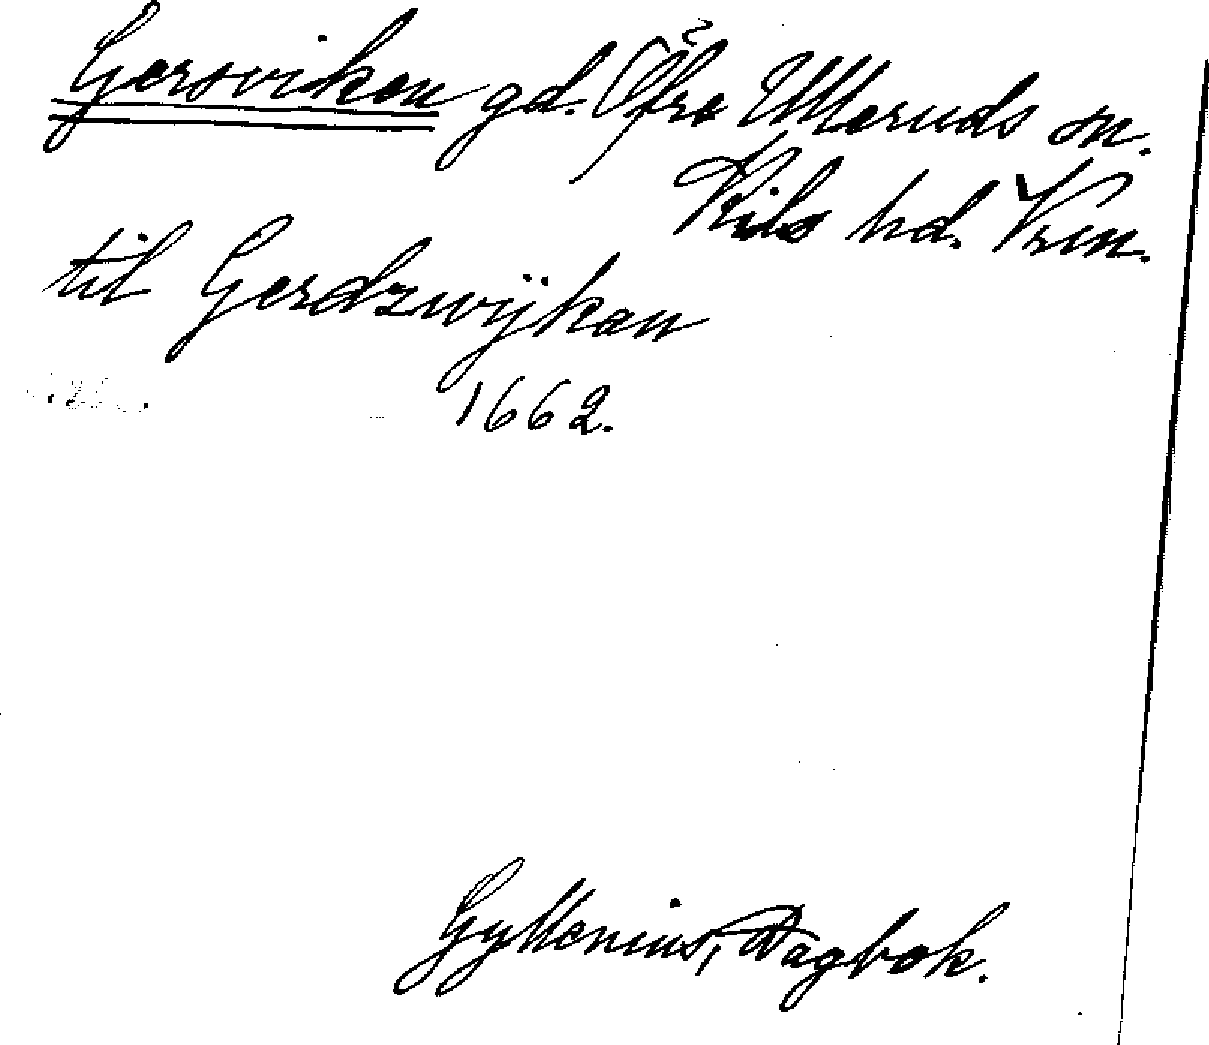 Gersviken gd. Öfre Ulleruds sn.
Kils hd. Vrm.
til Gerdzwijken
1662.
Gyllenius, Dagbok.